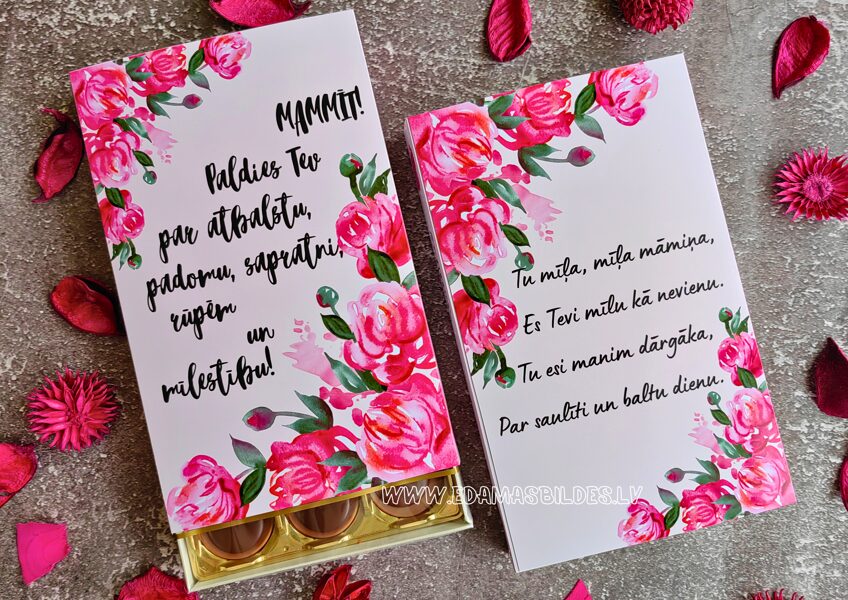 MAMMĪT!
Paldies Tev
par atbalstu,
padomu, sapratni,
rūpēm
un
mīlestību!
Tu mīļa, mīļa māmiņa,
Es Tevi mīlu kā nevienu.
Tu esi manim dārgāka,
Par saulīti un baltu dienu.
WWW.EDAMASBILDES.LV